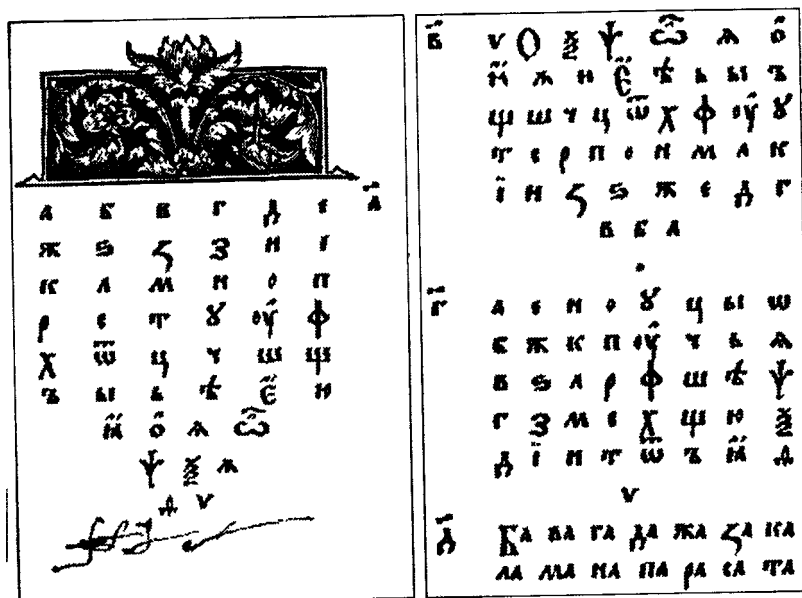 а б в г д е а҃
ж ѕ ꙁ з и і
к л м н о п
р с т ꙋ оу ф
х ѿ ц ч ш щ
ъ ы ь ѣ є ю
ꙗ о ѧ ѽ
ѱ ѯ ѫ
ѵ
в҃ ѵ Ѳ ѯ ѱ ѽ ѧ о
ꙗ ѫ ю є ѣ ь ы ъ
щ ш ч ц ѿ х ф оу ꙋ
т с р п о н м л к
і и ꙁ ѕ ж е д г
в б а
г҃ а е и о ꙋ ц ы ѡ
б ж к п оу ч ь ѧ
в ѕ л р ф ш ѣ ѱ
г з м с х щ ю ѯ
д і н т ѿ ъ ꙗ
ѵ
д҃ Ба ва га да жа ꙁа ка
ла ма на па ра са та